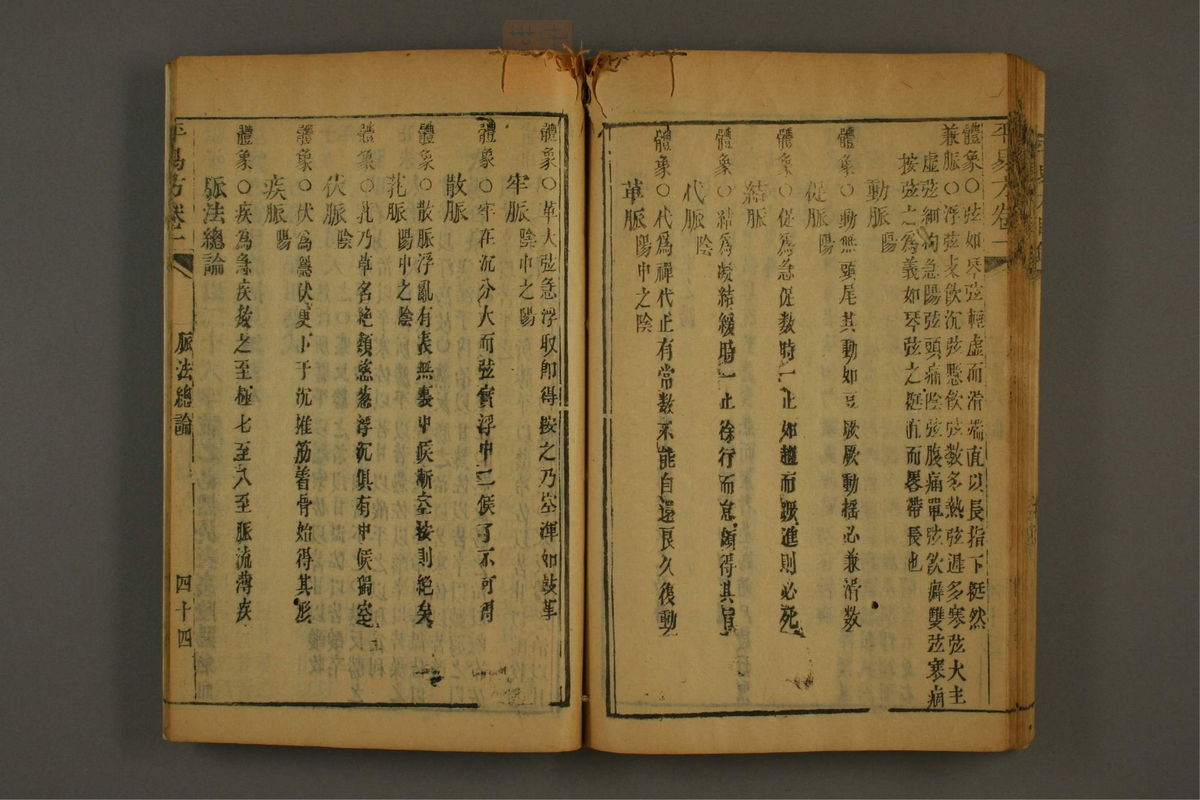 體象○弦如琴弦輕虛而滑端直以長指下挺然
兼脈○浮弦支飲沉弦懸飲弦數多熱弦遲多寒弦大主
虛弦細拘急陽弦頭痛陰弦腹痛單弦飲癖雙弦寒痼
按弦之為義如琴弦之挺直而畧帶長也
動脈陽
體象○動無頭尾其動如豆厥厥動搖必兼滑數
促脈陽
體象○促為急促數時一止如趨而蹶進則必死
結脈陰
體象○結為凝結緩時一止徐行而怠頗得其旨
代脈陰
體象○代為禪代止有常數不能自還良久復動
革脈陽中之陰
體象○革大弦急浮取即得按之乃空渾如鼓革
牢脈陰中之陽
體象○牢在沉分大而弦實浮中二候了不可得
散脈
體象○散脈浮亂有表無裏中候漸空按則絕矣
芤脈陽中之陰
體象○芤乃草名絕類慈葱浮沉俱有中候獨空
伏脈陰
體象○伏為隱伏更下于沉推筋著骨始得其形
疾脈陽
體象○疾為急疾數之至極七至八至脈流薄疾
脈法總論
平易方卷一 脈法總論 四十四